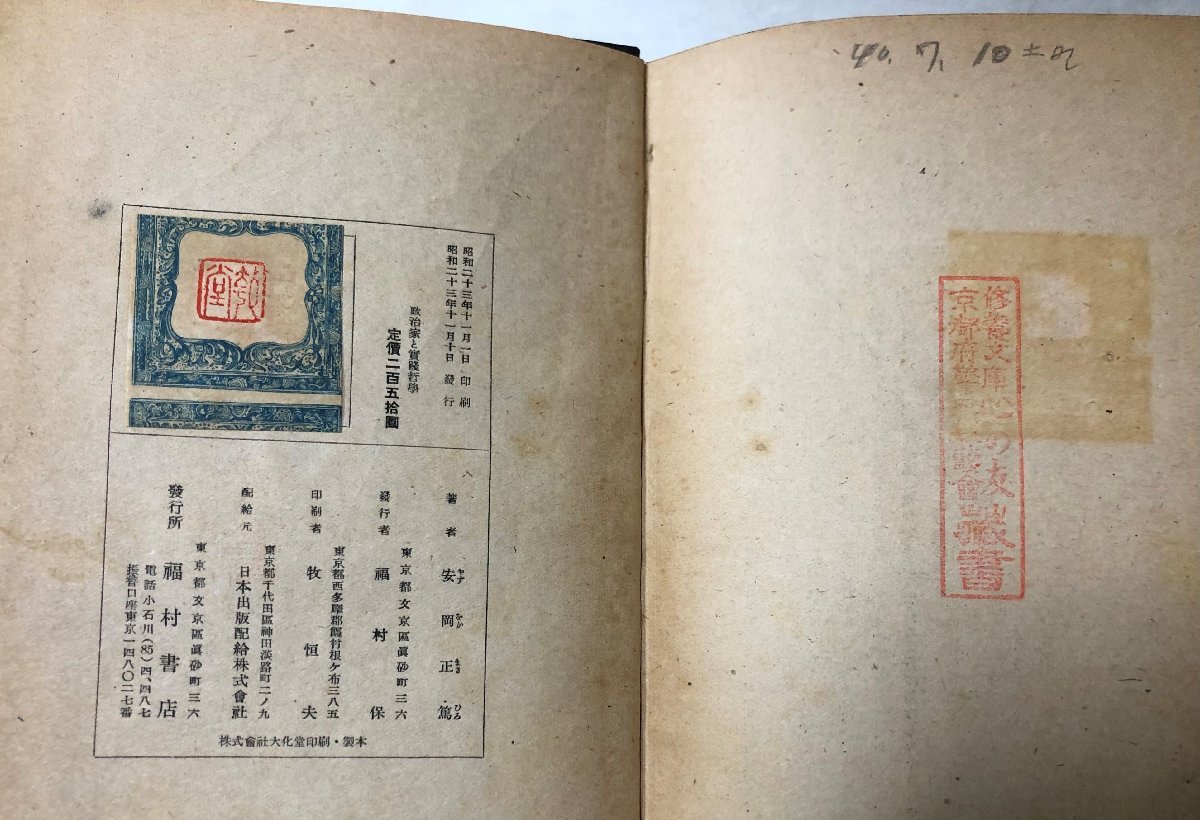 昭和二十三年十一月一日 印刷
昭和二十三年十一月十日 發行
政治家と實踐哲學
定價二百五拾圓
堂
著者 安岡正篤
やす をか まさ ひろ
東京都文京區眞砂町三六
發行者 福村保
東京都西多摩郡霞村根ケ布三八五
印刷者 牧恒夫
東京都千代田區神田淡路町二ノ九
配給元 日本出版配給株式會社
東京都文京區眞砂町三六
發行所 福村書店
電話小石川(85)四、四八七
振替口座東京一四八〇二七番
株式會社大化堂印刷・製本
40. 7. 10 土
修養文庫心の友
京都府
藏書